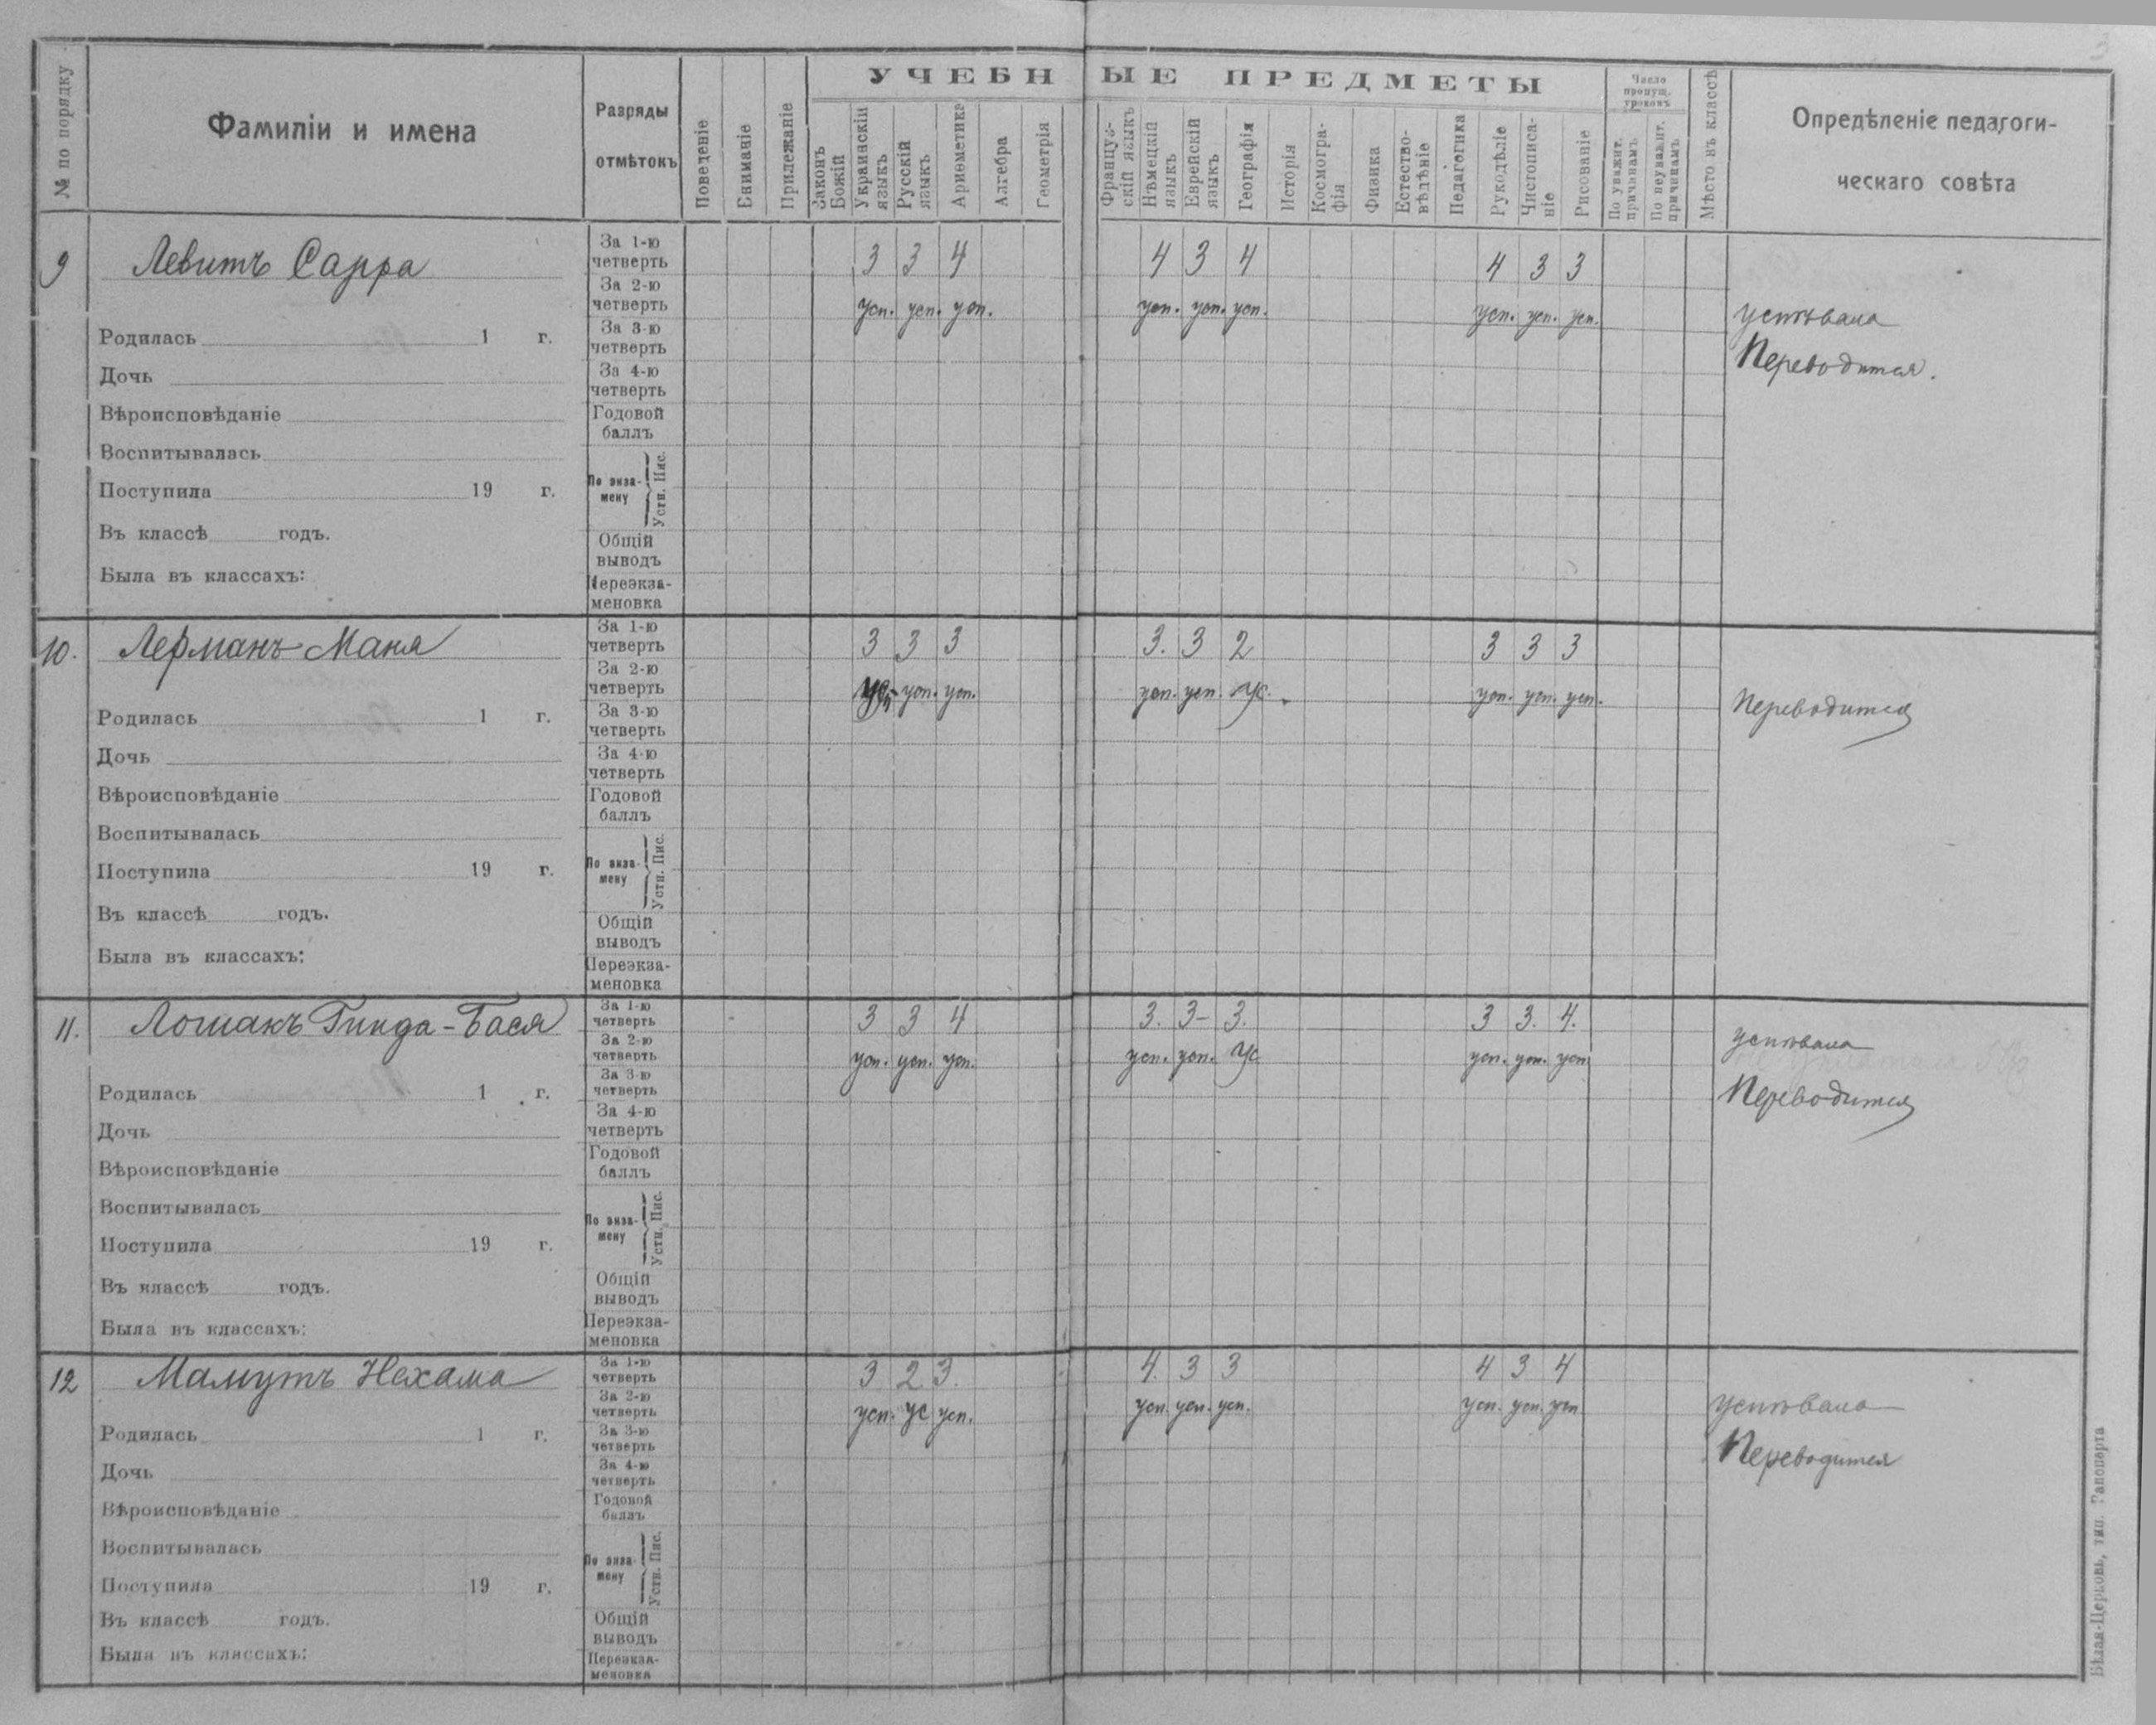 УЧЕБНЫЕ ПРЕДМЕТЫ
№ по порядку
Фамиліи и имена
Разряды отмѣтокъ
Поведеніе
Вниманіе
Прилежаніе
Законъ Божій
Украинскій языкъ
Русскій языкъ
Ариѳметика
Алгебра
Геометрія
Француз-скій языкъ
Нѣмецкій языкъ
Еврейскій языкъ
Географія
Исторія
Космогра-фія
Физика
Естество-вѣдѣніе
Педагогика
Рукодѣліе
Чистописа-ніе
Рисованіе
Число пропущ. уроковъ
По уважит. причинамъ
По неуважит. причинамъ
Мѣсто въ классѣ
Опредѣленіе педагоги-
ческаго совѣта
9 Левитъ Сарра
За 1-ю четверть 3 3 4 4 3 4 4 3 3
За 2-ю четверть усп. усп. усп. усп. усп. усп. усп. усп. усп.
успѣвала
Переводится.
За 3-ю четверть
За 4-ю четверть
Годовой баллъ
По экза-мену Устн. Пис.
Общій выводъ
Переэкза-меновка
Родилась 1 г.
Дочь
Вѣроисповѣданіе
Воспитывалась
Поступила 19 г.
Въ классѣ годъ.
Была въ классахъ:
10. Лерманъ Маня
За 1-ю четверть 3 3 3 3. 3 2 3 3 3
За 2-ю четверть усп. усп. усп. усп. усп. ус. усп. усп. усп.
Переводится
За 3-ю четверть
За 4-ю четверть
Годовой баллъ
По экза-мену Устн. Пис.
Общій выводъ
Переэкза-меновка
Родилась 1 г.
Дочь
Вѣроисповѣданіе
Воспитывалась
Поступила 19 г.
Въ классѣ годъ.
Была въ классахъ:
11. Лошакъ Гинда-Бася
За 1-ю четверть 3 3 4 3. 3- 3. 3 3. 4.
За 2-ю четверть усп. усп. усп. усп. усп. ус усп. усп. усп
успѣвала
Переводится
За 3-ю четверть
За 4-ю четверть
Годовой баллъ
По экза-мену Устн. Пис.
Общій выводъ
Переэкза-меновка
Родилась 1 г.
Дочь
Вѣроисповѣданіе
Воспитывалась
Поступила 19 г.
Въ классѣ годъ.
Была въ классахъ:
12 Мамутъ Нехама
За 1-ю четверть 3 2 3. 4. 3 3 4 3 4
За 2-ю четверть усп. ус усп. усп. усп. усп. усп. усп. усп
успѣвала
Переводится
За 3-ю четверть
За 4-ю четверть
Годовой баллъ
По экза-мену Устн. Пис.
Общій выводъ
Переэкза-меновка
Родилась 1 г.
Дочь
Вѣроисповѣданіе
Воспитывалась
Поступила 19 г.
Въ классѣ годъ.
Была въ классахъ:
Бѣлая-Церковь, тип. Рапопорта